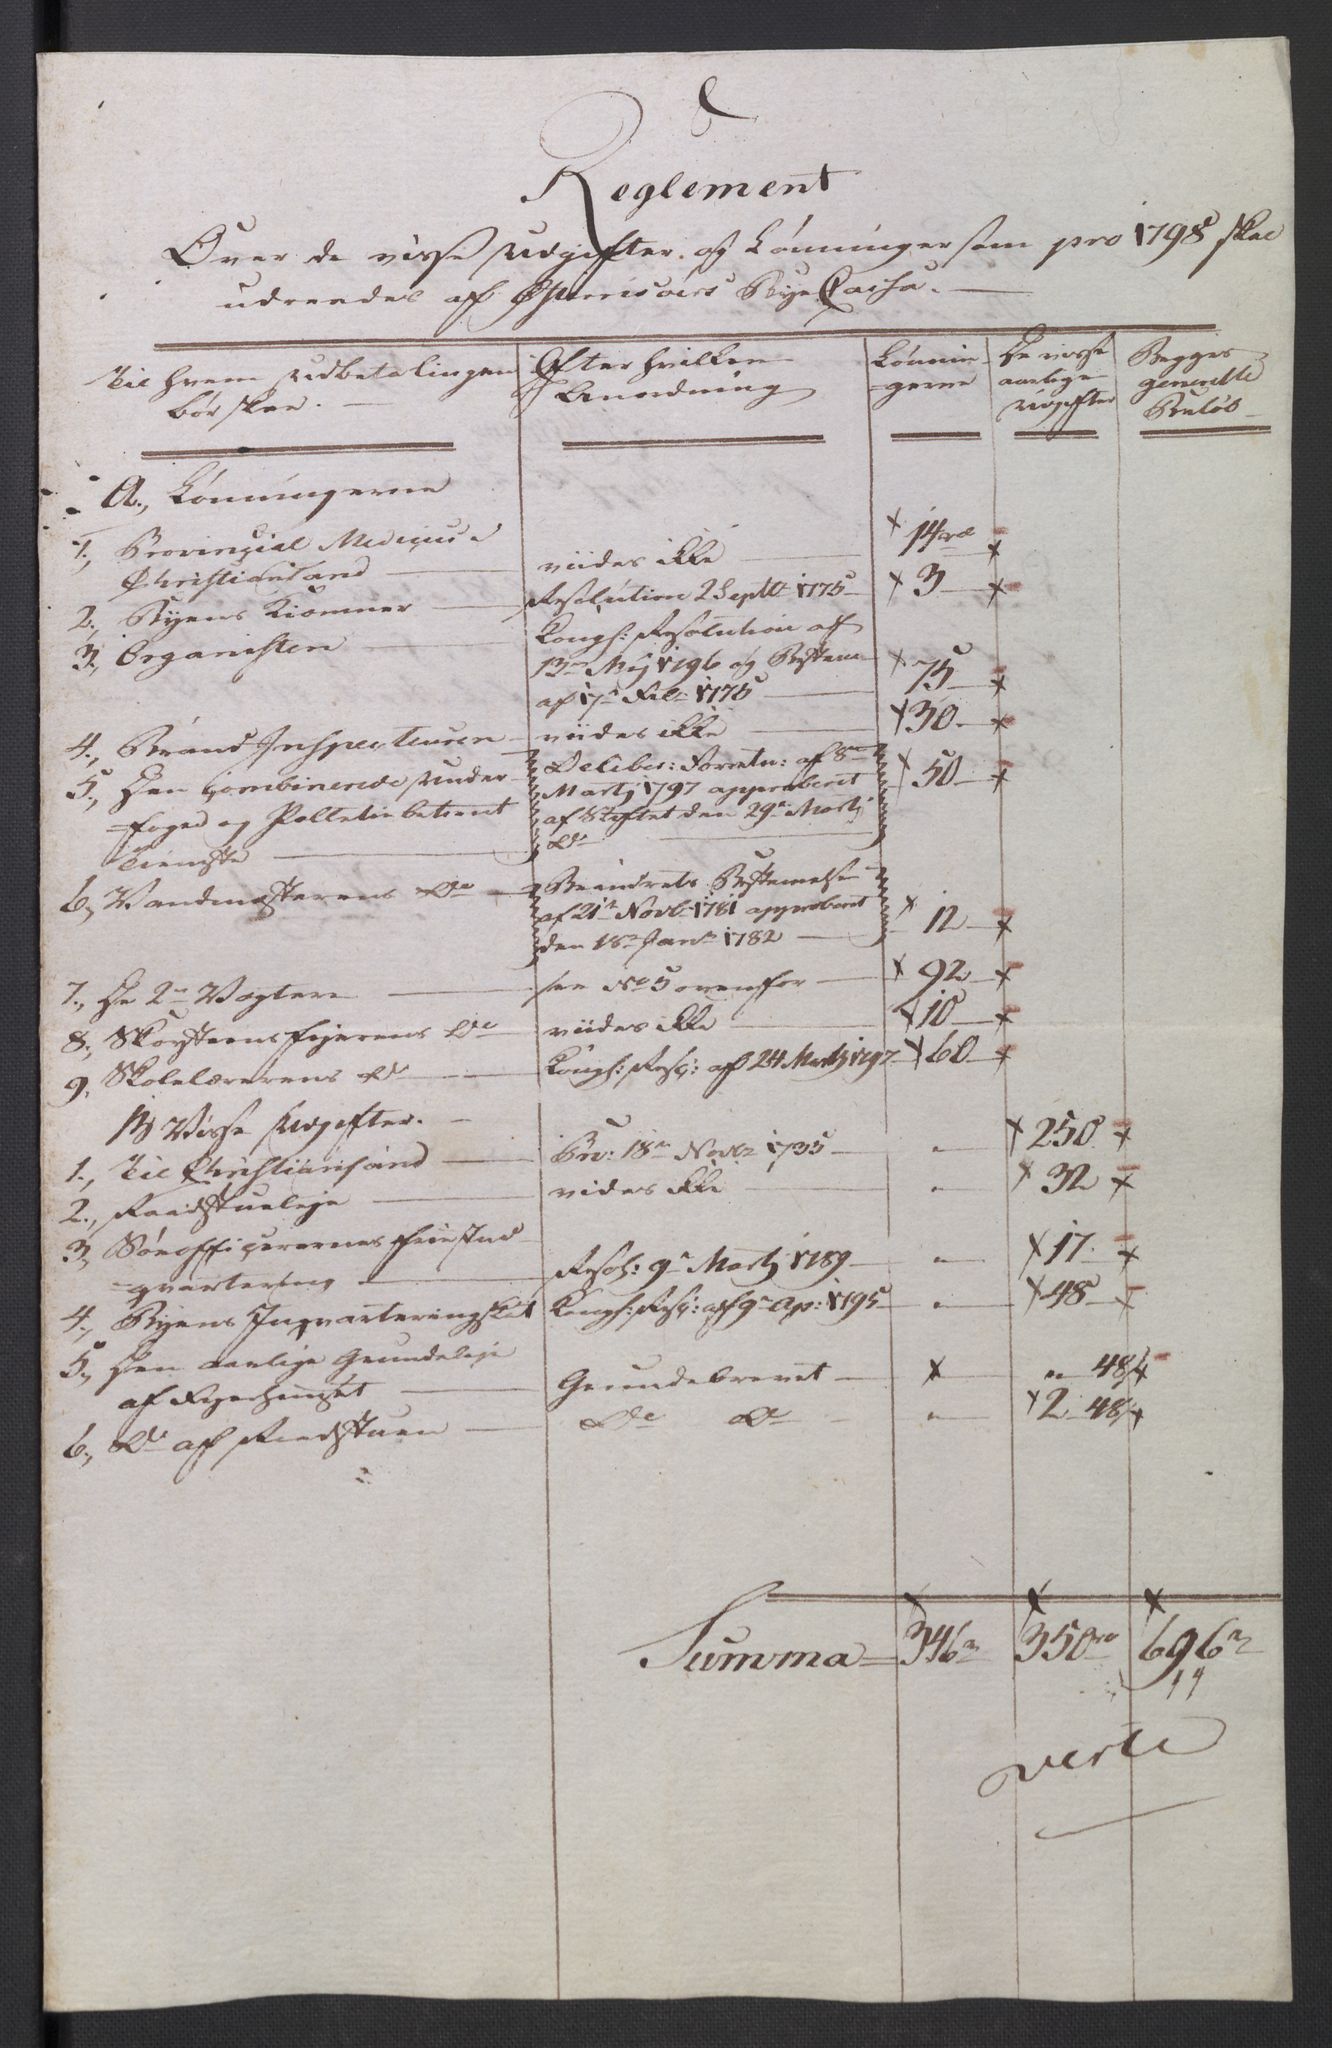 Reglement
Over de visse Udgifter og Lønninger som pro 1798 skal
udreedes af Østerriisøers Bye Cassa.
Til hvem Udbetalingen
bør skee.
Efter hvilken
Anordning
Lønnin-
gerne
De visse
aarlige
Udgifter
Begges
generelle
Beløb
A., Lønningerne
1., Provinzial Medicus i
Christiansand viides ikke 14 rd
2., Byens Kiæmner Resolution 2 Septbr 1775 3
3., Organisten Kongl: Resolution af
13de Maj 1796 og Bestem
af 17de Feb: 1775 75
4., Brand Inspecteuren viides ikke 30
5., Den combinerede Under-
foged og Politiebetient
Tieneste
Deliber: Forretn: af 8de
Martj 1797 approberet
af Stiftet den 29de Martj
do
50
6., Vandmesterens do
Brandrets Bestemelse
af 21de Novbr 1781 approberet
den 18de Janr 1782 12
7., De 2de Vægtere see No 5 ovenfor 92
8., Skorsteensfejerens do viides ikke 10
9., Skolelærerens do Kongl: Resol: af 24 Martj 1797 60
B, Visse Udgifter.
1., Til Christiansand Brv: 18de Novbr 1735 " 250
2., Raadstueleje viides ikke " 32
3., Søeofficerernes friestad
qvartering Resol: 9de Martj 1789 " 17
4., Byens Inqvarteringskat Kongl: Resol: af 9de Ap: 1795 " 48
5., Den aarlige Grundeleje
af Sprøjtehuuset Grundebrevet " 48
6., do af Raadstuen do do " 2 48
Summa = 346 rd 350 rd 696 rd
verte